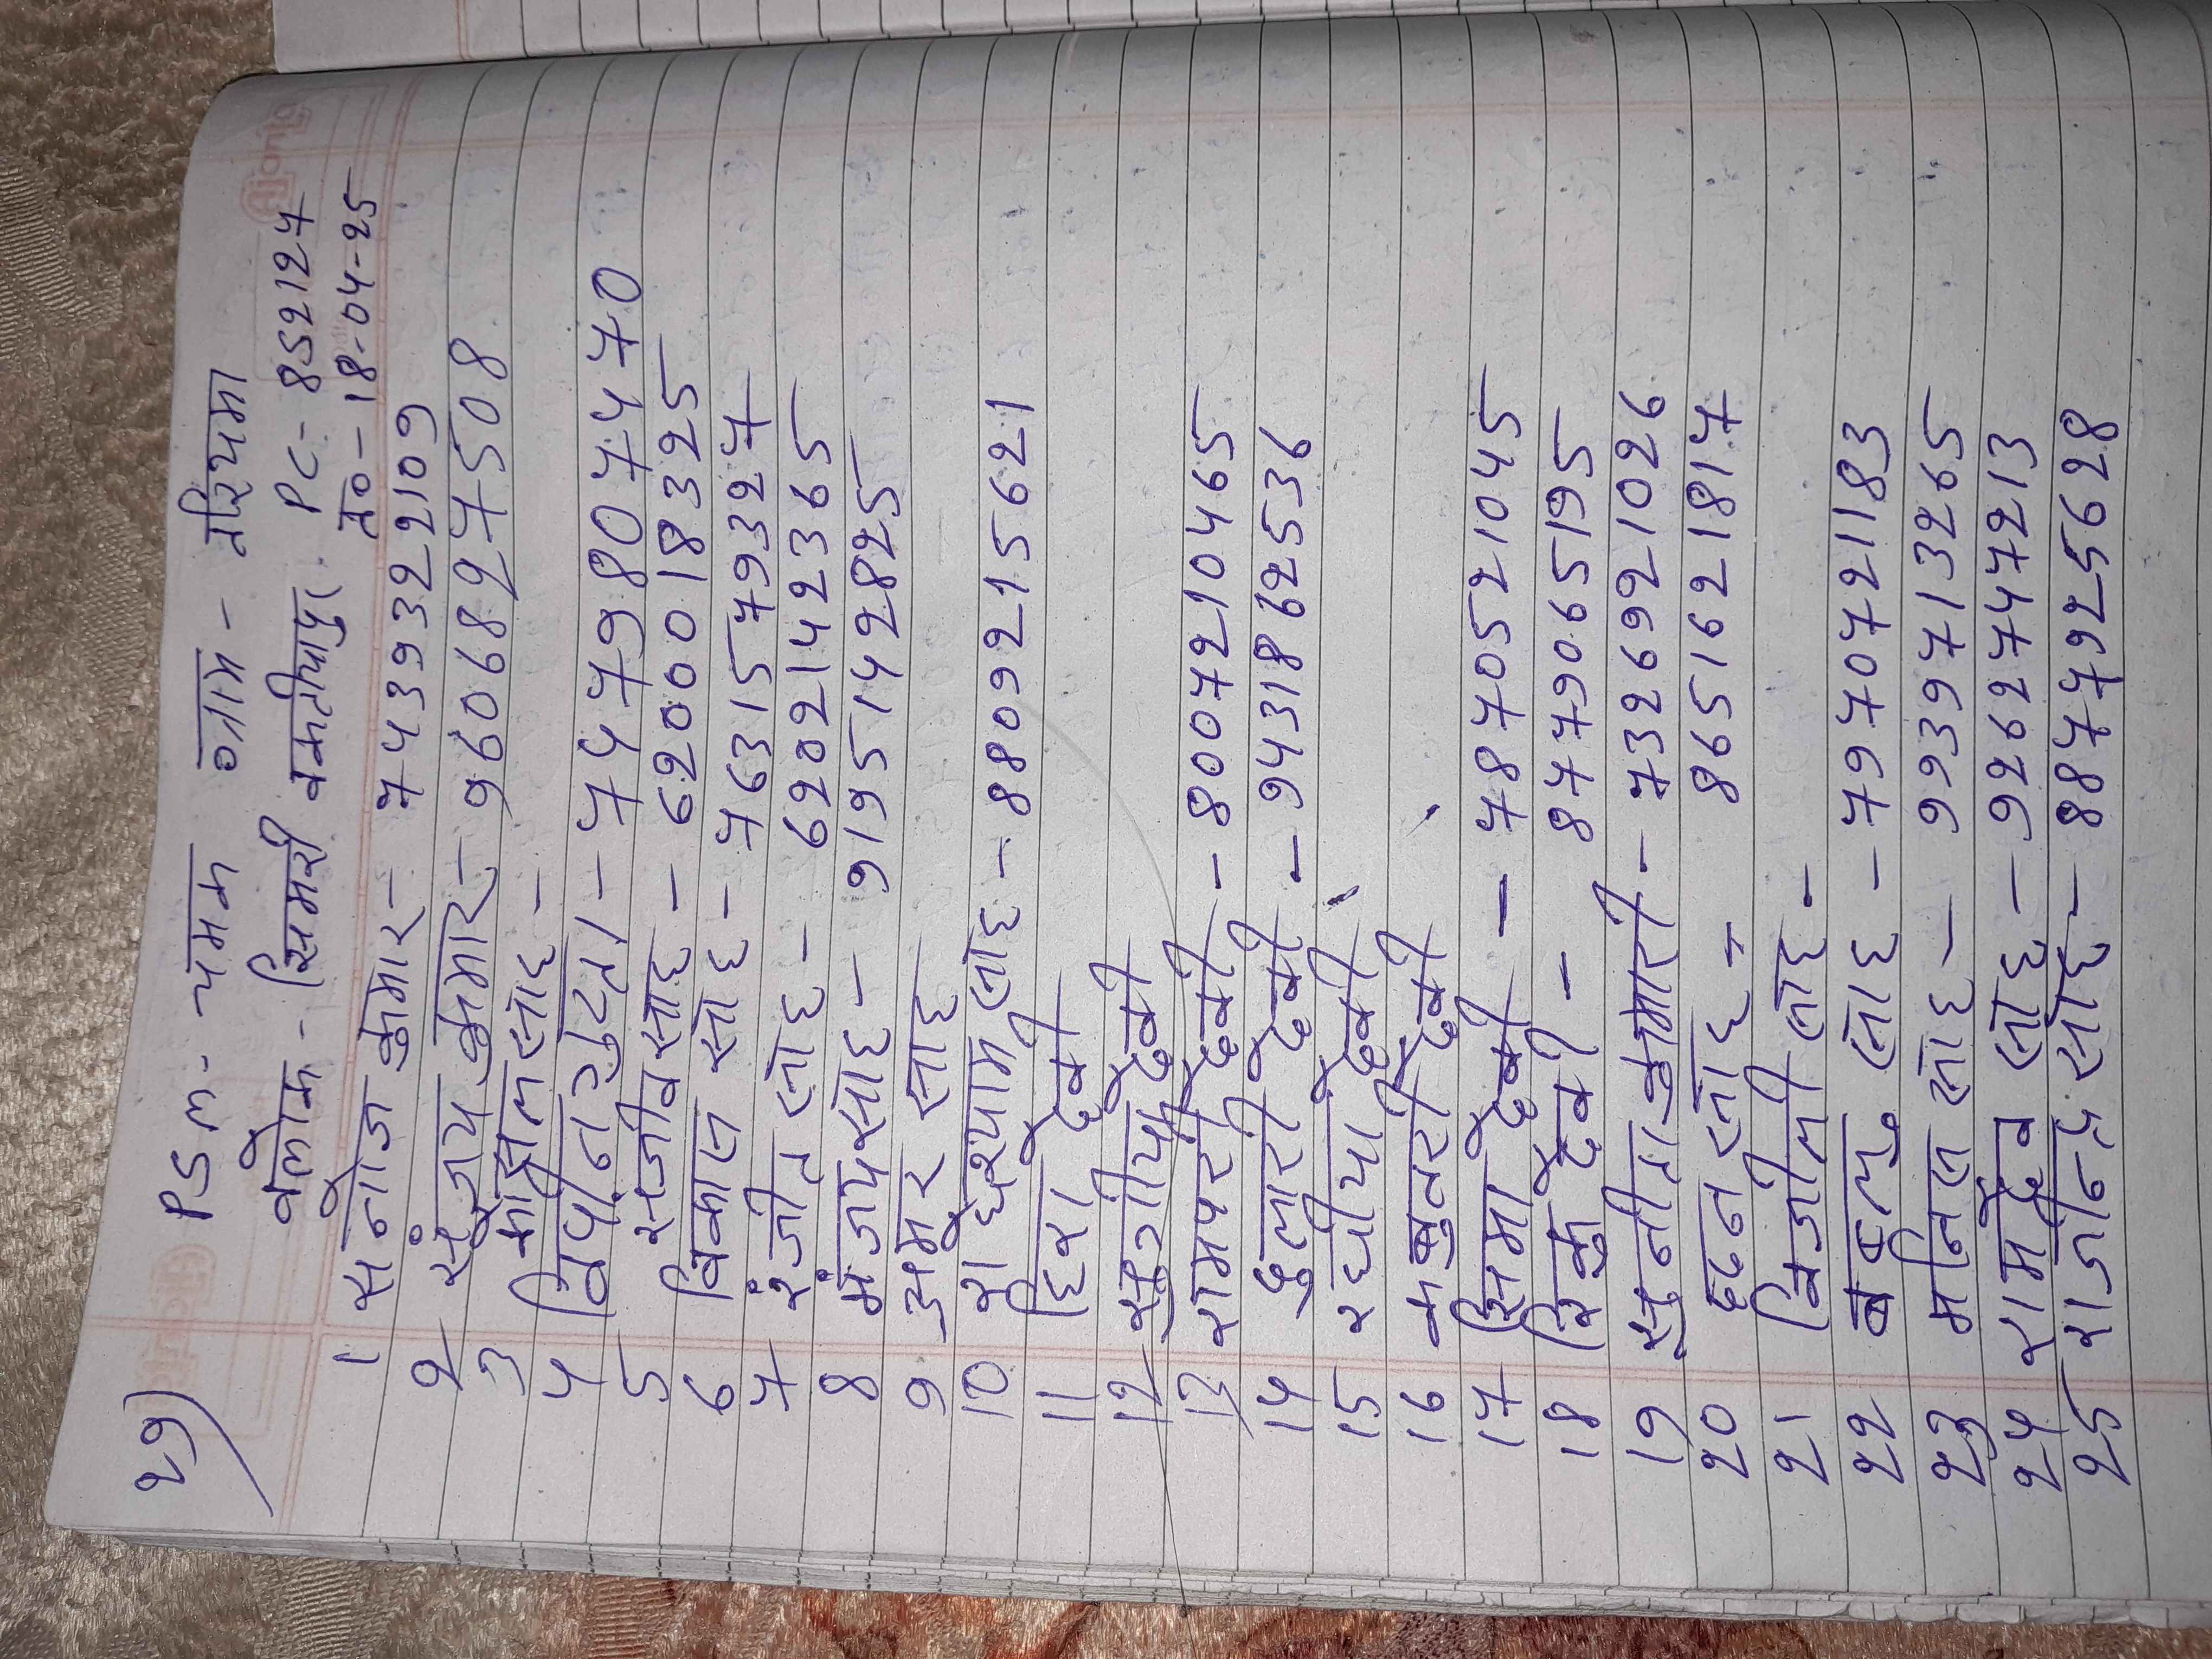 29)
PSM- पमम ग्राम - वरियमा
बलोक - सिमरी बकतीयापुर PC- 852127
ता०- 18-04-25
1 सनोज कुमार - 7439322109
2 संजय कुमार - 9606827508
3 साद -
4 विपीन गुप्ता - 7479807470
5 सजीव साद - 6200018325
6 विकास साद - 7631579327
7 रंजीत साद - 6202142365
8 मंजय साद - 9195142825
9 अमर साद
10 राधेश्याम साद - 8809215621
11 हिरा देवी
12 देवी
13 रामपरी देवी - 8007210465
14 दुलारी देवी - 9431862536
15 रधीया देवी
16 देवी
17 सिमा देवी - 7870521045
18 रिंकु देवी - 8479065195
19 सुनीता कुमारी - 7326921026
20 ददन साद - 8651621817
21 बिजीली साद -
22 बबलु साद - 7970721183
23 मनिस साद - 9939713265
24 रामदेव साद - 9262747213
25 राजीन्द्र साद - 8877925628